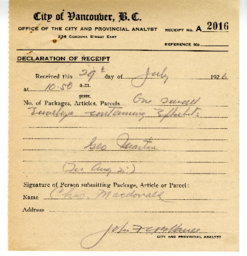 City of Vancouver, B.C.
OFFICE OF THE CITY AND PROVINCIAL ANALYST
RECEIPT No. A 2016
236 CORDOVA STREET EAST
REFERENCE No.
DECLARATION OF RECEIPT
Received this 29th day of July 1926
at 10.50 a.m.
No. of Packages, Articles, Parcels One small
envelope containing
Geo
Signature of Person submitting Package, Article or Parcel:
Name Chas. Macdonald
Address
CITY AND PROVINCIAL ANALYST